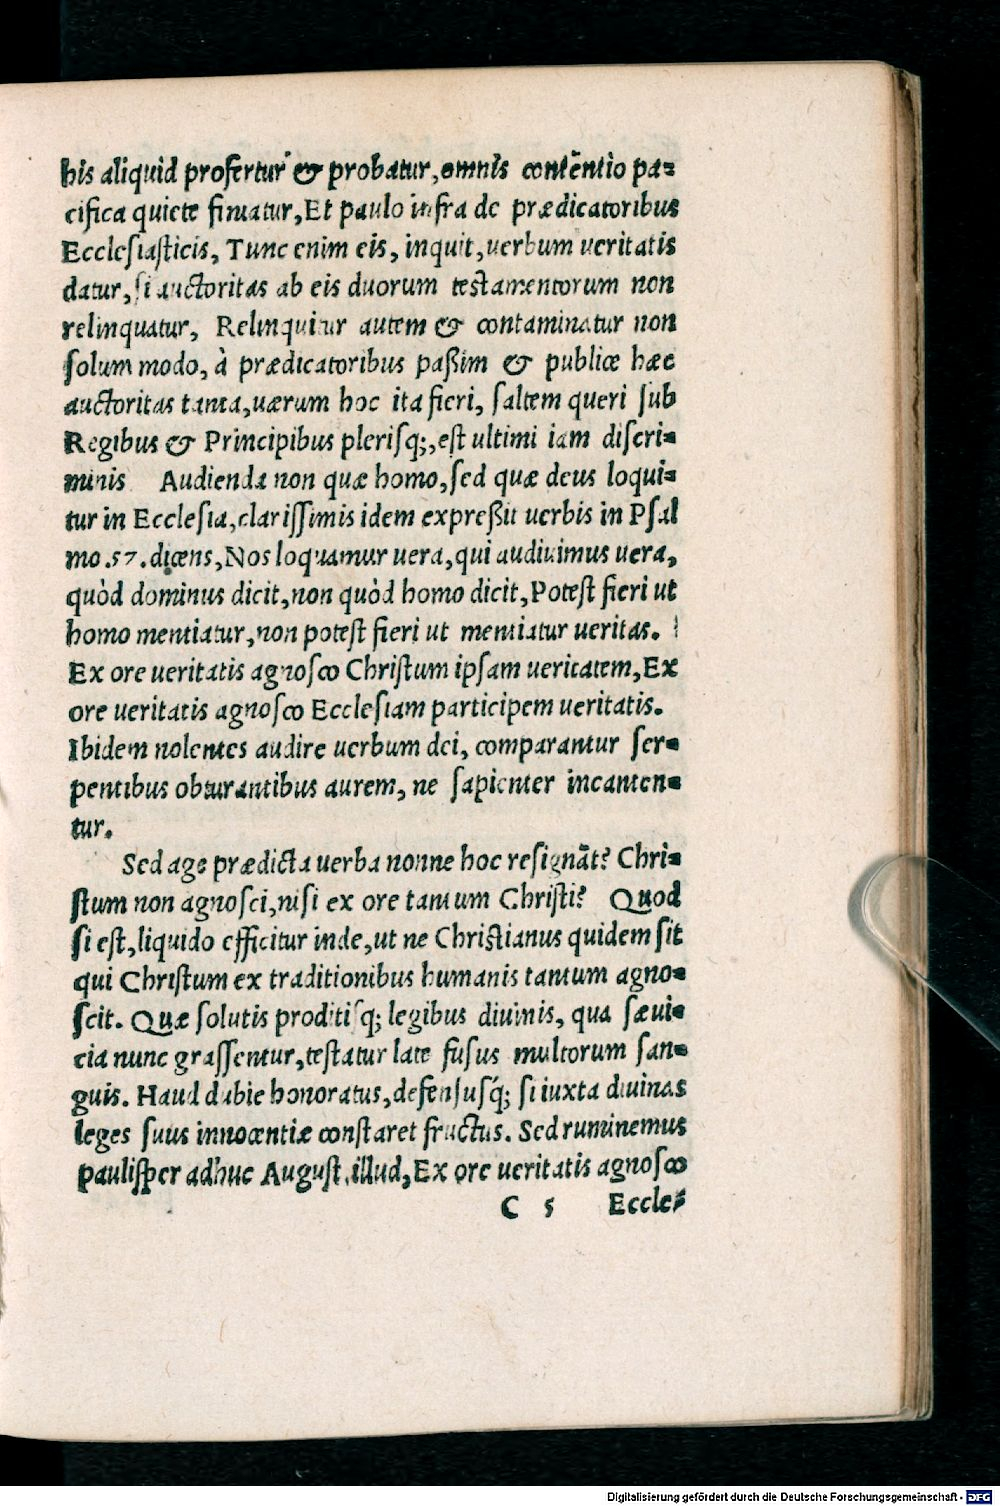 bis aliquid profertur & probatur, omnis contẽntio pa-
cifica quiete finiatur, Et paulo infra de prædicatoribus
Ecclesiasticis, Tunc enim eis, inquit, uerbum ueritatis
datur, si auctoritas ab eis duorum testamentorum non
relinquatur, Relinquitur autem & contaminatur non
solum modo, à prædicatoribus paßim & publice hæc
auctoritas tanta, uærum hoc ita fieri, saltem queri sub
Regibus & Principibus plerisq;, est ultimi iam discri-
minis Audienda non quæ homo, sed quæ deus loqui-
tur in Ecclesia, clarissimis idem expreßit uerbis in Psal
mo .57. dicens, Nos loquamur uera, qui audiuimus uera,
quòd dominus dicit, non quòd homo dicit, Potest fieri ut
homo mentiatur, non potest fieri ut mentiatur ueritas.
Ex ore ueritatis agnosco Christum ipsam ueritatem, Ex
ore ueritatis agnosco Ecclesiam participem ueritatis.
Ibidem nolentes audire uerbum dei, comparantur ser-
pentibus obturantibus aurem, ne sapienter incanten-
tur.
Sed age prædicta uerba nonne hoc resignãt? Chri-
stum non agnosci, nisi ex ore tantum Christi? Quod
si est, liquido efficitur inde, ut ne Christianus quidem sit
qui Christum ex traditionibus humanis tantum agno-
scit. Quæ solutis proditisq; legibus diuinis, qua sæui-
cia nunc grassentur, testatur late fusus multorum san-
guis. Haud dubie honoratus, defensusq́; si iuxta diuinas
leges suus innocentiæ constaret fructus. Sed ruminemus
paulisper adhuc August. illud, Ex ore ueritatis agnosco
C 5 Eccle-
Digitalisierung gefördert durch die Deutsche Forschungsgemeinschaft - DFG